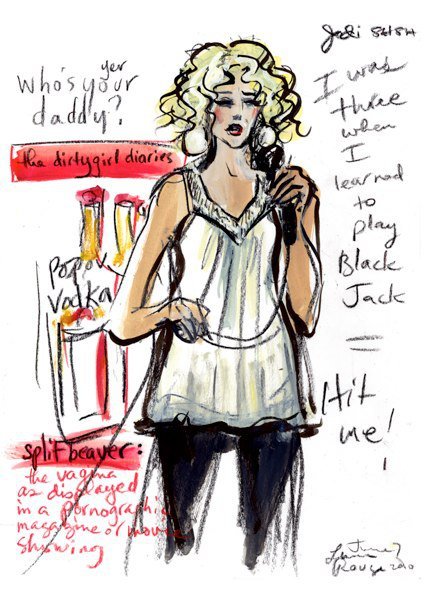 who's your
yer
daddy?
the dirtygirl diaries
Popov
Vodka
split beaver:
the vagina
as displayed
in a pornographic
magazine or movie
showing
Jodi
I was
three
when
I
learned
to
play
Black
Jack
Hit
me!
June 7
Rouge 2010